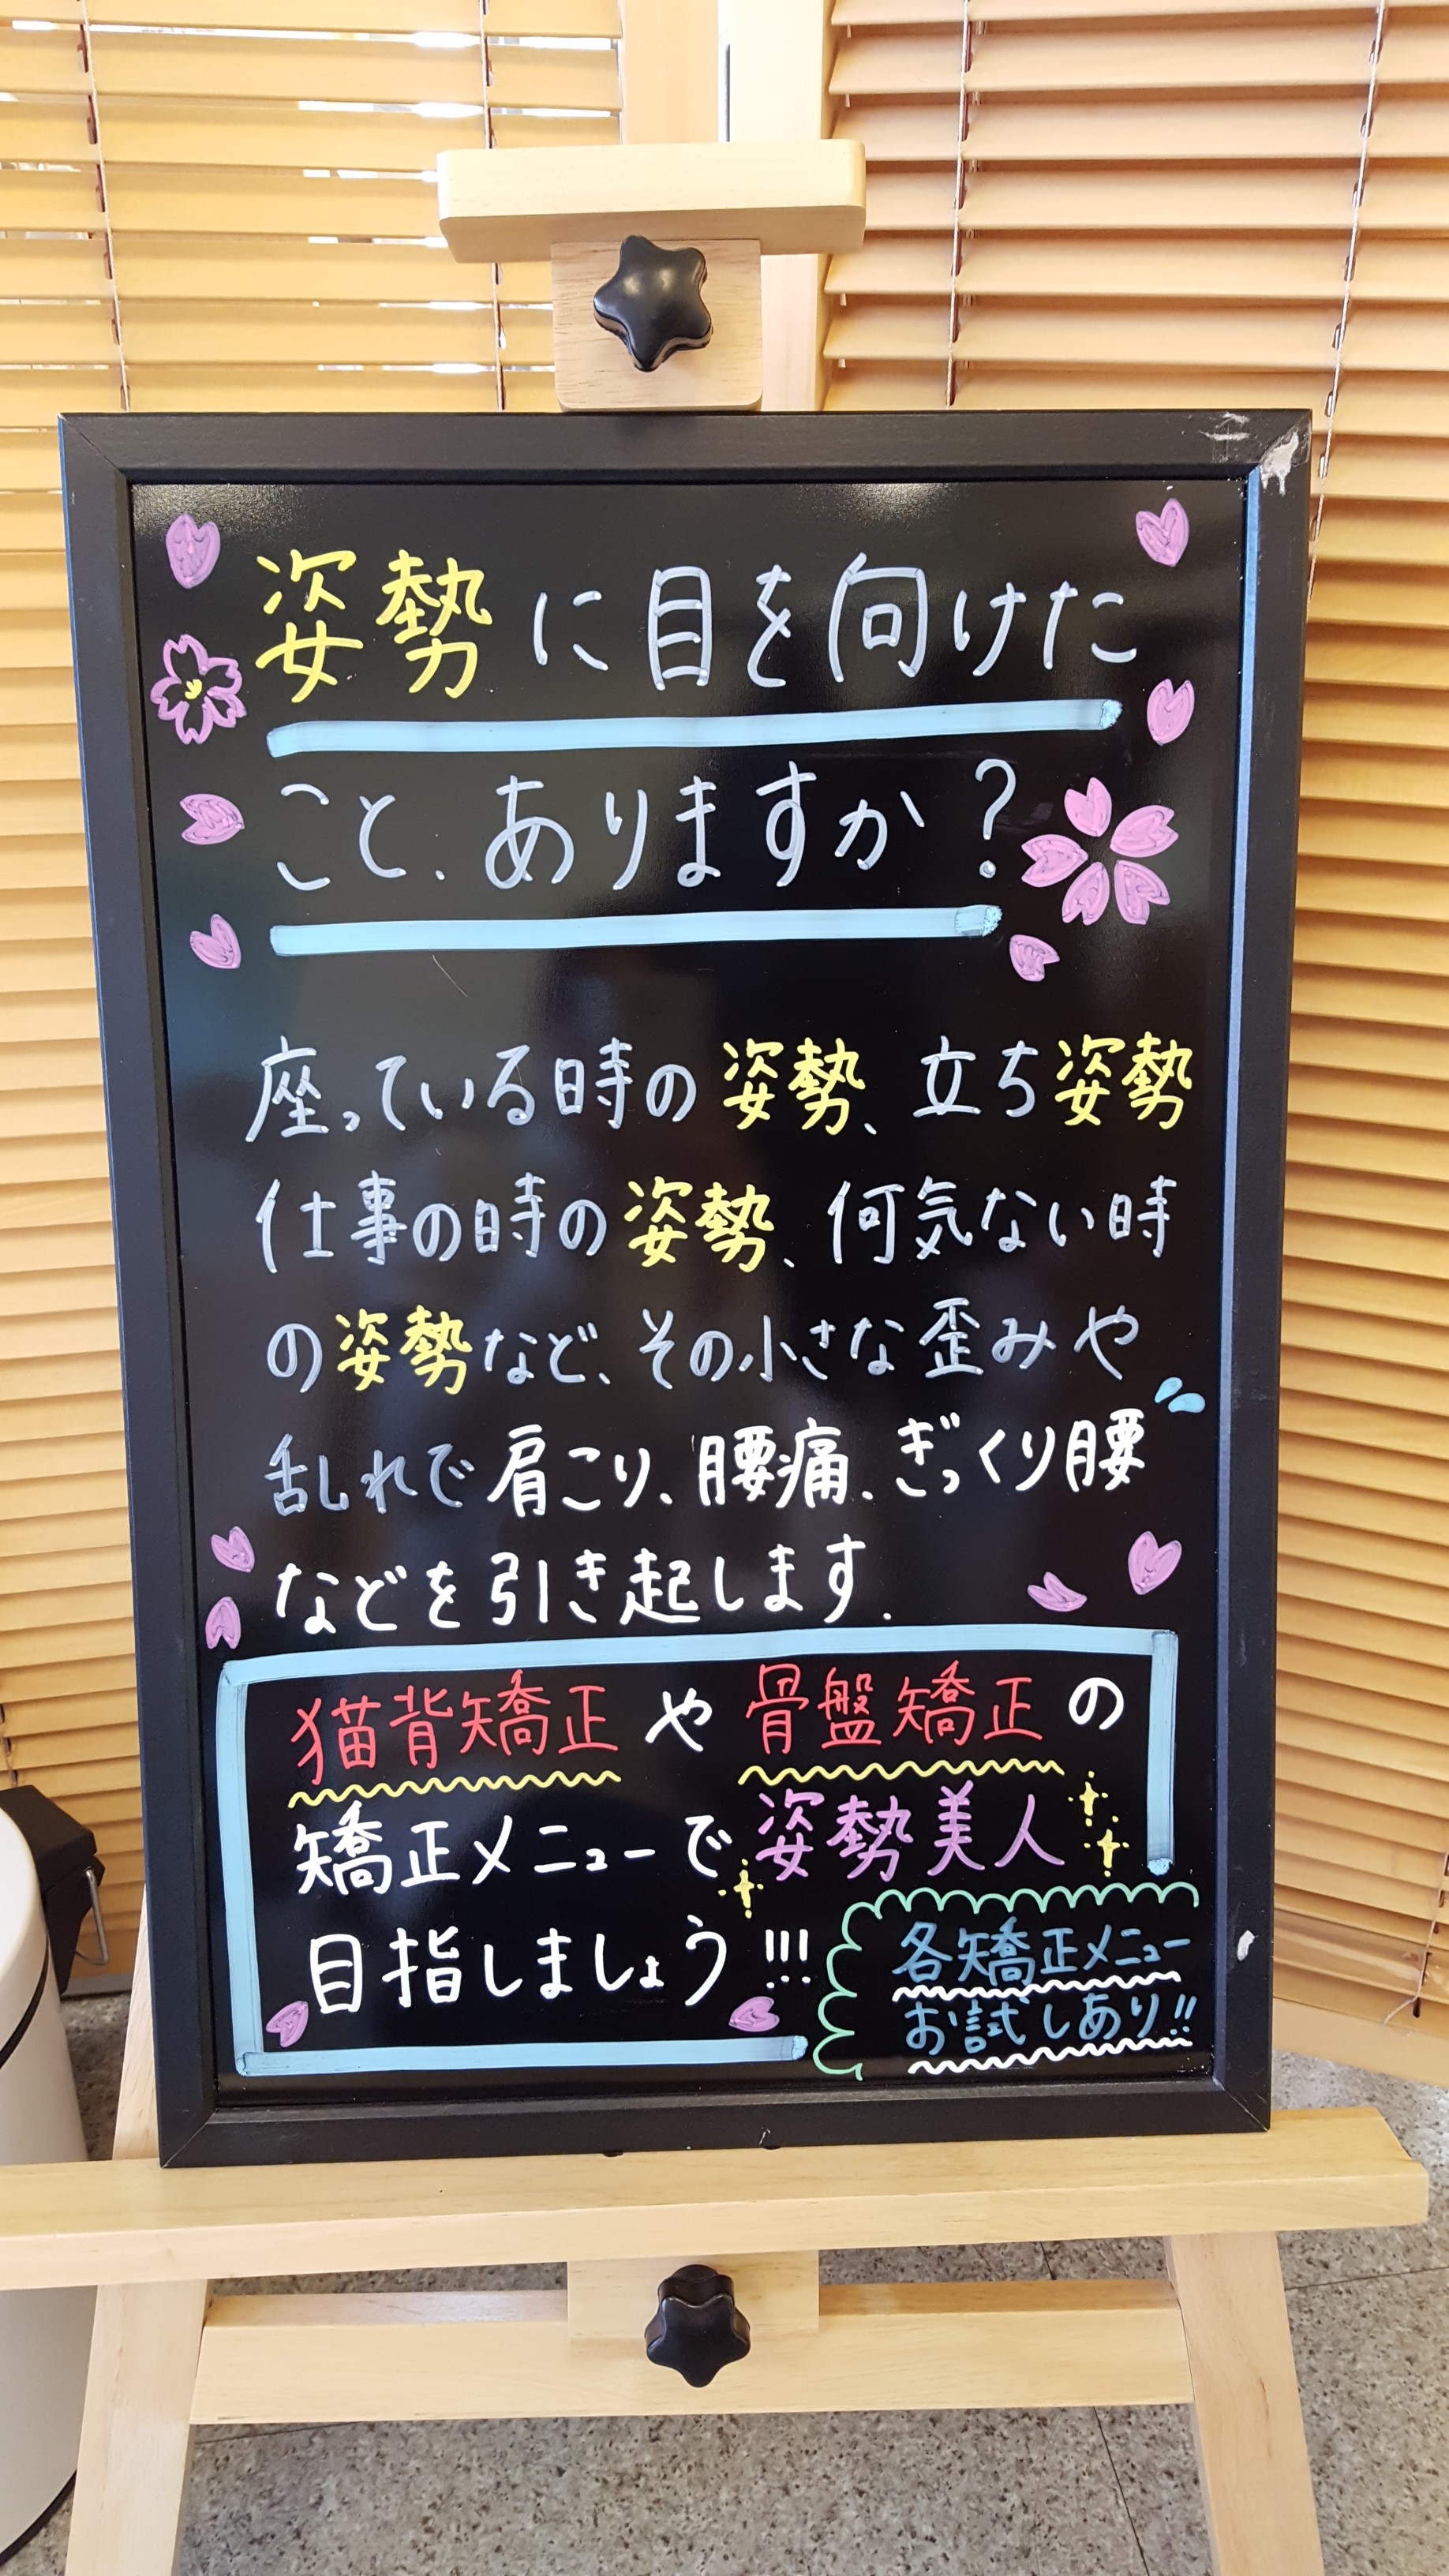 姿勢に目を向けた
こと、ありますか？
座っている時の姿勢、立ち姿勢
仕事の時の姿勢、何気ない時
の姿勢など、その小さな歪みや
乱れで肩こり、腰痛、ぎっくり腰
などを引き起します。
猫背矯正や骨盤矯正の
矯正メニューで姿勢美人
目指しましょう!!!
各矯正メニュー
お試しあり!!